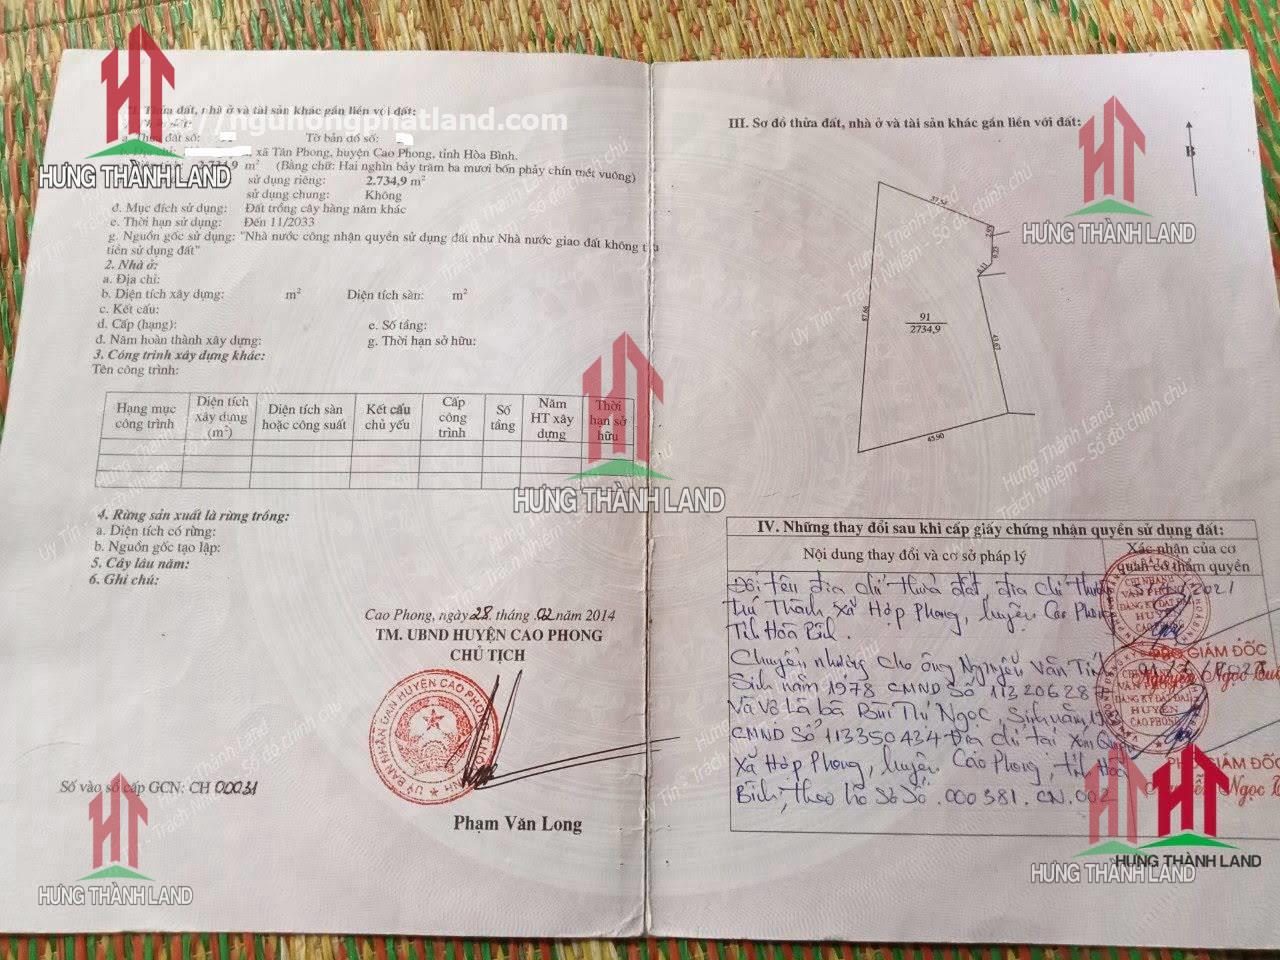 II. Thửa đất, nhà ở và tài sản khác gắn liền với đất:
nguhongphatland.com
a. Thửa đất số: Tờ bản đồ số:
xã Tân Phong, huyện Cao Phong, tỉnh Hòa Bình.
2.734,9 m² (Bằng chữ: Hai nghìn bảy trăm ba mươi bốn phảy chín mét vuông)
sử dụng riêng: 2.734,9 m²
sử dụng chung: Không
đ. Mục đích sử dụng: Đất trồng cây hàng năm khác
e. Thời hạn sử dụng: Đến 11/2033
g. Nguồn gốc sử dụng: "Nhà nước công nhận quyền sử dụng đất như Nhà nước giao đất không
tiền sử dụng đất"
2. Nhà ở:
a. Địa chỉ:
b. Diện tích xây dựng: m² Diện tích sàn: m²
c. Kết cấu:
d. Cấp (hạng): e. Số tầng:
đ. Năm hoàn thành xây dựng: g. Thời hạn sở hữu:
3. Công trình xây dựng khác:
Tên công trình:
Hạng mục công trình
Diện tích xây dựng (m²)
Diện tích sàn hoặc công suất
Kết cấu chủ yếu
Cấp công trình
Số tầng
Năm HT xây dựng
Thời hạn sở hữu
4. Rừng sản xuất là rừng trồng:
a. Diện tích có rừng:
b. Nguồn gốc tạo lập:
5. Cây lâu năm:
6. Ghi chú:
Cao Phong, ngày 28 tháng 02 năm 2014
TM. UBND HUYỆN CAO PHONG
CHỦ TỊCH
ỦY BAN NHÂN DÂN HUYỆN CAO PHONG
Phạm Văn Long
Số vào sổ cấp GCN: CH 00031
III. Sơ đồ thửa đất, nhà ở và tài sản khác gắn liền với đất:
B
37.54
87.66
91
2734,9
43.67
45.90
IV. Những thay đổi sau khi cấp giấy chứng nhận quyền sử dụng đất:
Nội dung thay đổi và cơ sở pháp lý
Xác nhận của cơ quan có thẩm quyền
Đổi tên địa chỉ thửa đất, địa chỉ thường
trú Thành xã Hợp Phong, huyện Cao Phong
Tỉnh Hòa Bình.
Chuyển nhượng cho ông Nguyễn Văn
Sinh năm 1978 CMND số
Và vợ là bà Bùi Thị Ngọc, Sinh năm
CMND số 113350434 Địa chỉ tại Xóm
xã Hợp Phong, huyện Cao Phong, tỉnh Hòa
Bình, theo hồ sơ số 000381.CN.002
CHI NHÁNH
VĂN PHÒNG
ĐĂNG KÝ ĐẤT ĐAI
HUYỆN
CAO PHONG
PHÓ GIÁM ĐỐC
Nguyễn Ngọc
GIÁM ĐỐC
Ngọc
HƯNG THÀNH LAND
HƯNG THÀNH LAND
HƯNG THÀNH LAND
HƯNG THÀNH LAND
HƯNG THÀNH LAND
HƯNG THÀNH LAND
Hưng Thành Land
Uy Tín - Trách Nhiệm - Sổ đỏ chính chủ